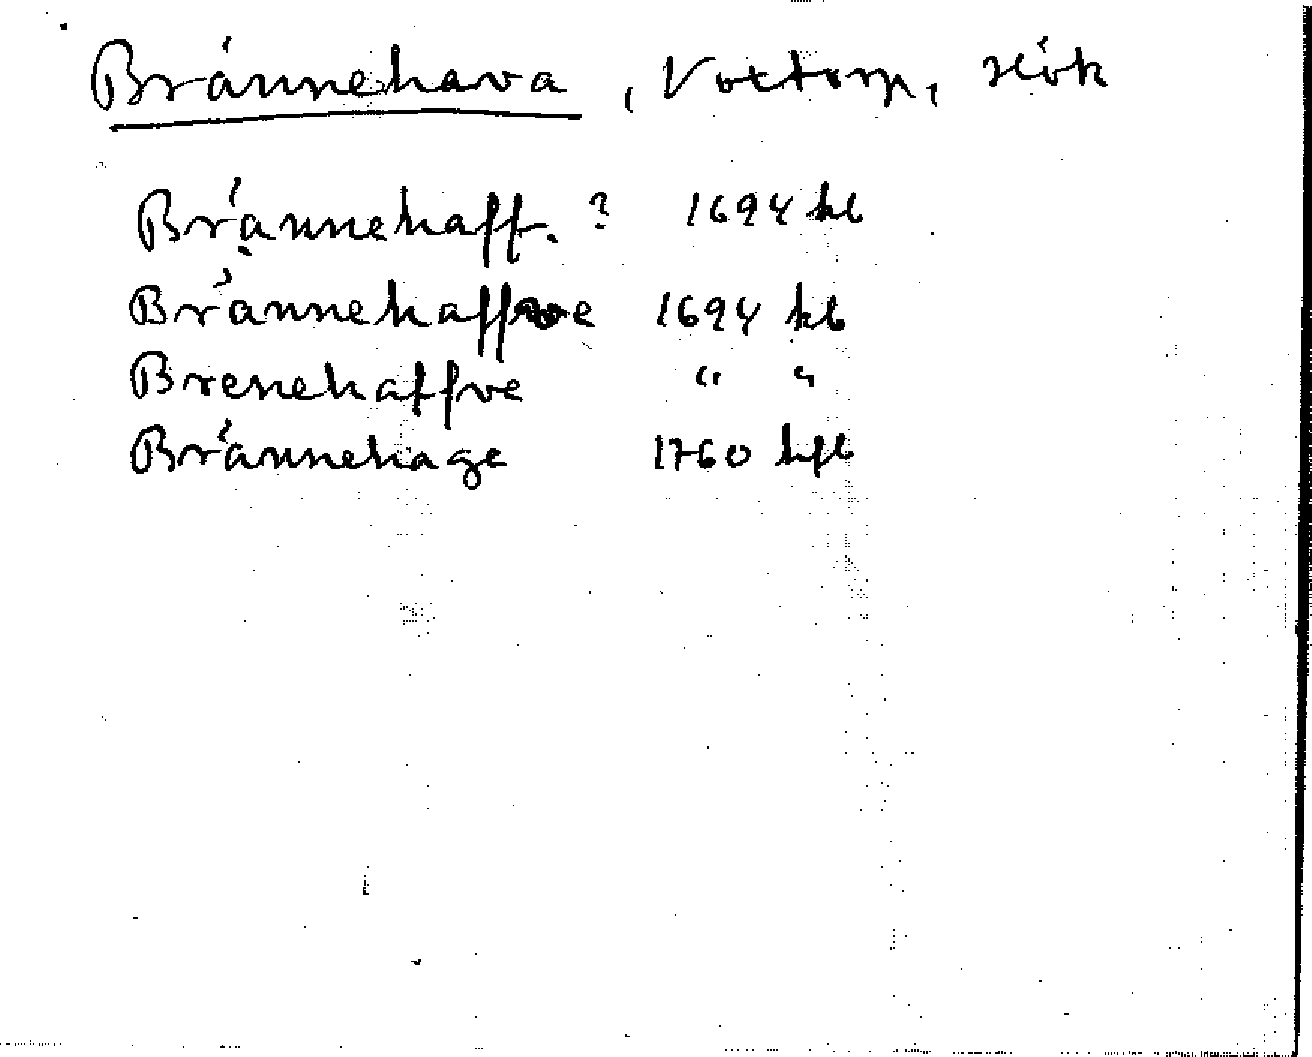 Brännehava, Voxtorp, Hök
Brännehaff. ? 1694 kb
Brännehaffwe 1694 kb
Brenehaffve " "
Brännehage 1760 hfl